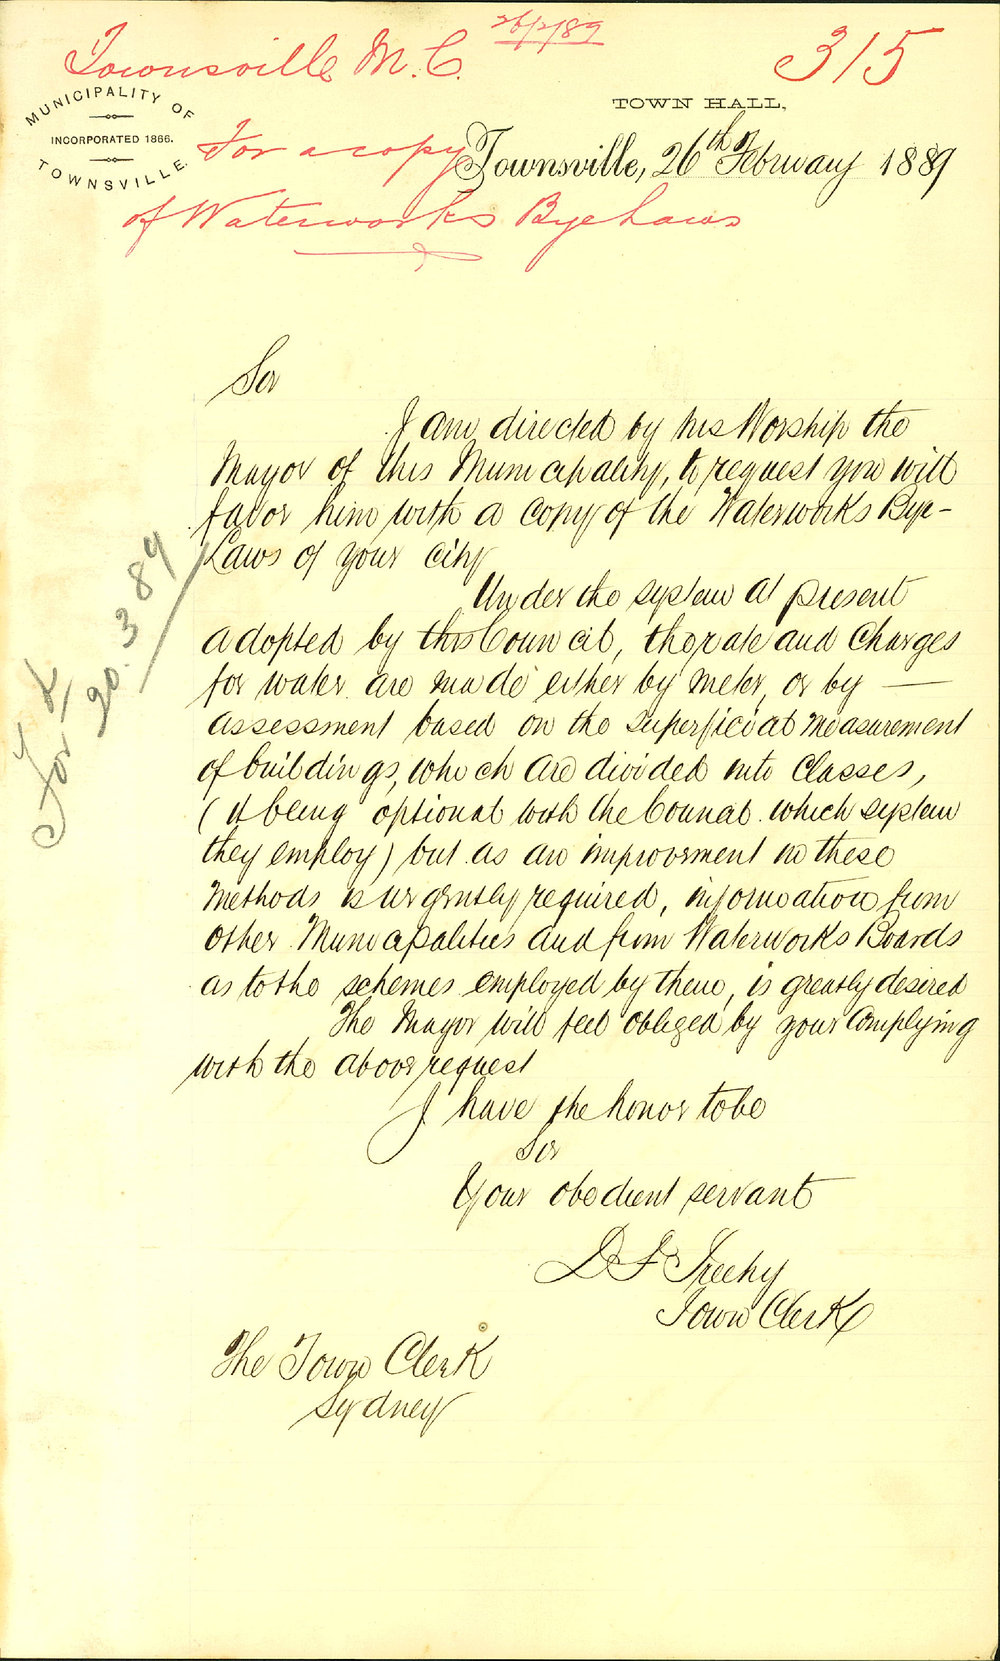 Townsville M.C. 26/2/89
315
MUNICIPALITY OF
INCORPORATED 1866.
TOWNSVILLE.
TOWN HALL,
Townsville, 26th February 1889
For a copy
of Waterworks Bye Laws
Sir
I am directed by his Worship the
Mayor of this Municipality, to request you will
favor him with a copy of the Waterworks Bye-
Laws of your city
Under the system at present
adopted by this Council, the rate and charges
for water are made either by meter, or by —
assessment based on the superficial measurement
of buildings, which are divided into classes,
(it being optional with the Council which system
they employ) but as an improvement in these
methods is urgently required, information from
other Municipalities and from Waterworks Boards
as to the schemes employed by them, is greatly desired
The Mayor will feel obliged by your complying
with the above request
I have the honor to be
Sir
Your obedient servant
Town Clerk
The Town Clerk
Sydney
20.3.89